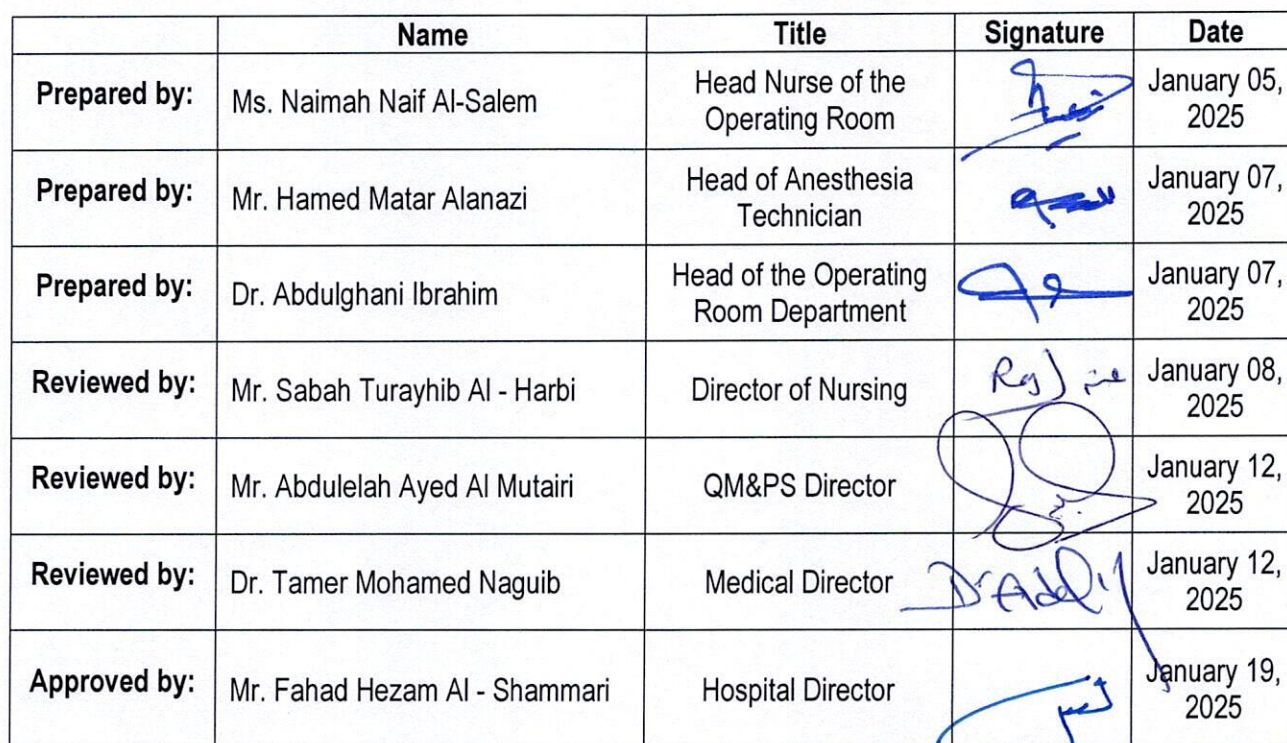 Name Title Signature Date
Prepared by: Ms. Naimah Naif Al-Salem Head Nurse of the Operating Room January 05, 2025
Prepared by: Mr. Hamed Matar Alanazi Head of Anesthesia Technician January 07, 2025
Prepared by: Dr. Abdulghani Ibrahim Head of the Operating Room Department January 07, 2025
Reviewed by: Mr. Sabah Turayhib Al - Harbi Director of Nursing January 08, 2025
Reviewed by: Mr. Abdulelah Ayed Al Mutairi QM&PS Director January 12, 2025
Reviewed by: Dr. Tamer Mohamed Naguib Medical Director January 12, 2025
Approved by: Mr. Fahad Hezam Al - Shammari Hospital Director January 19, 2025